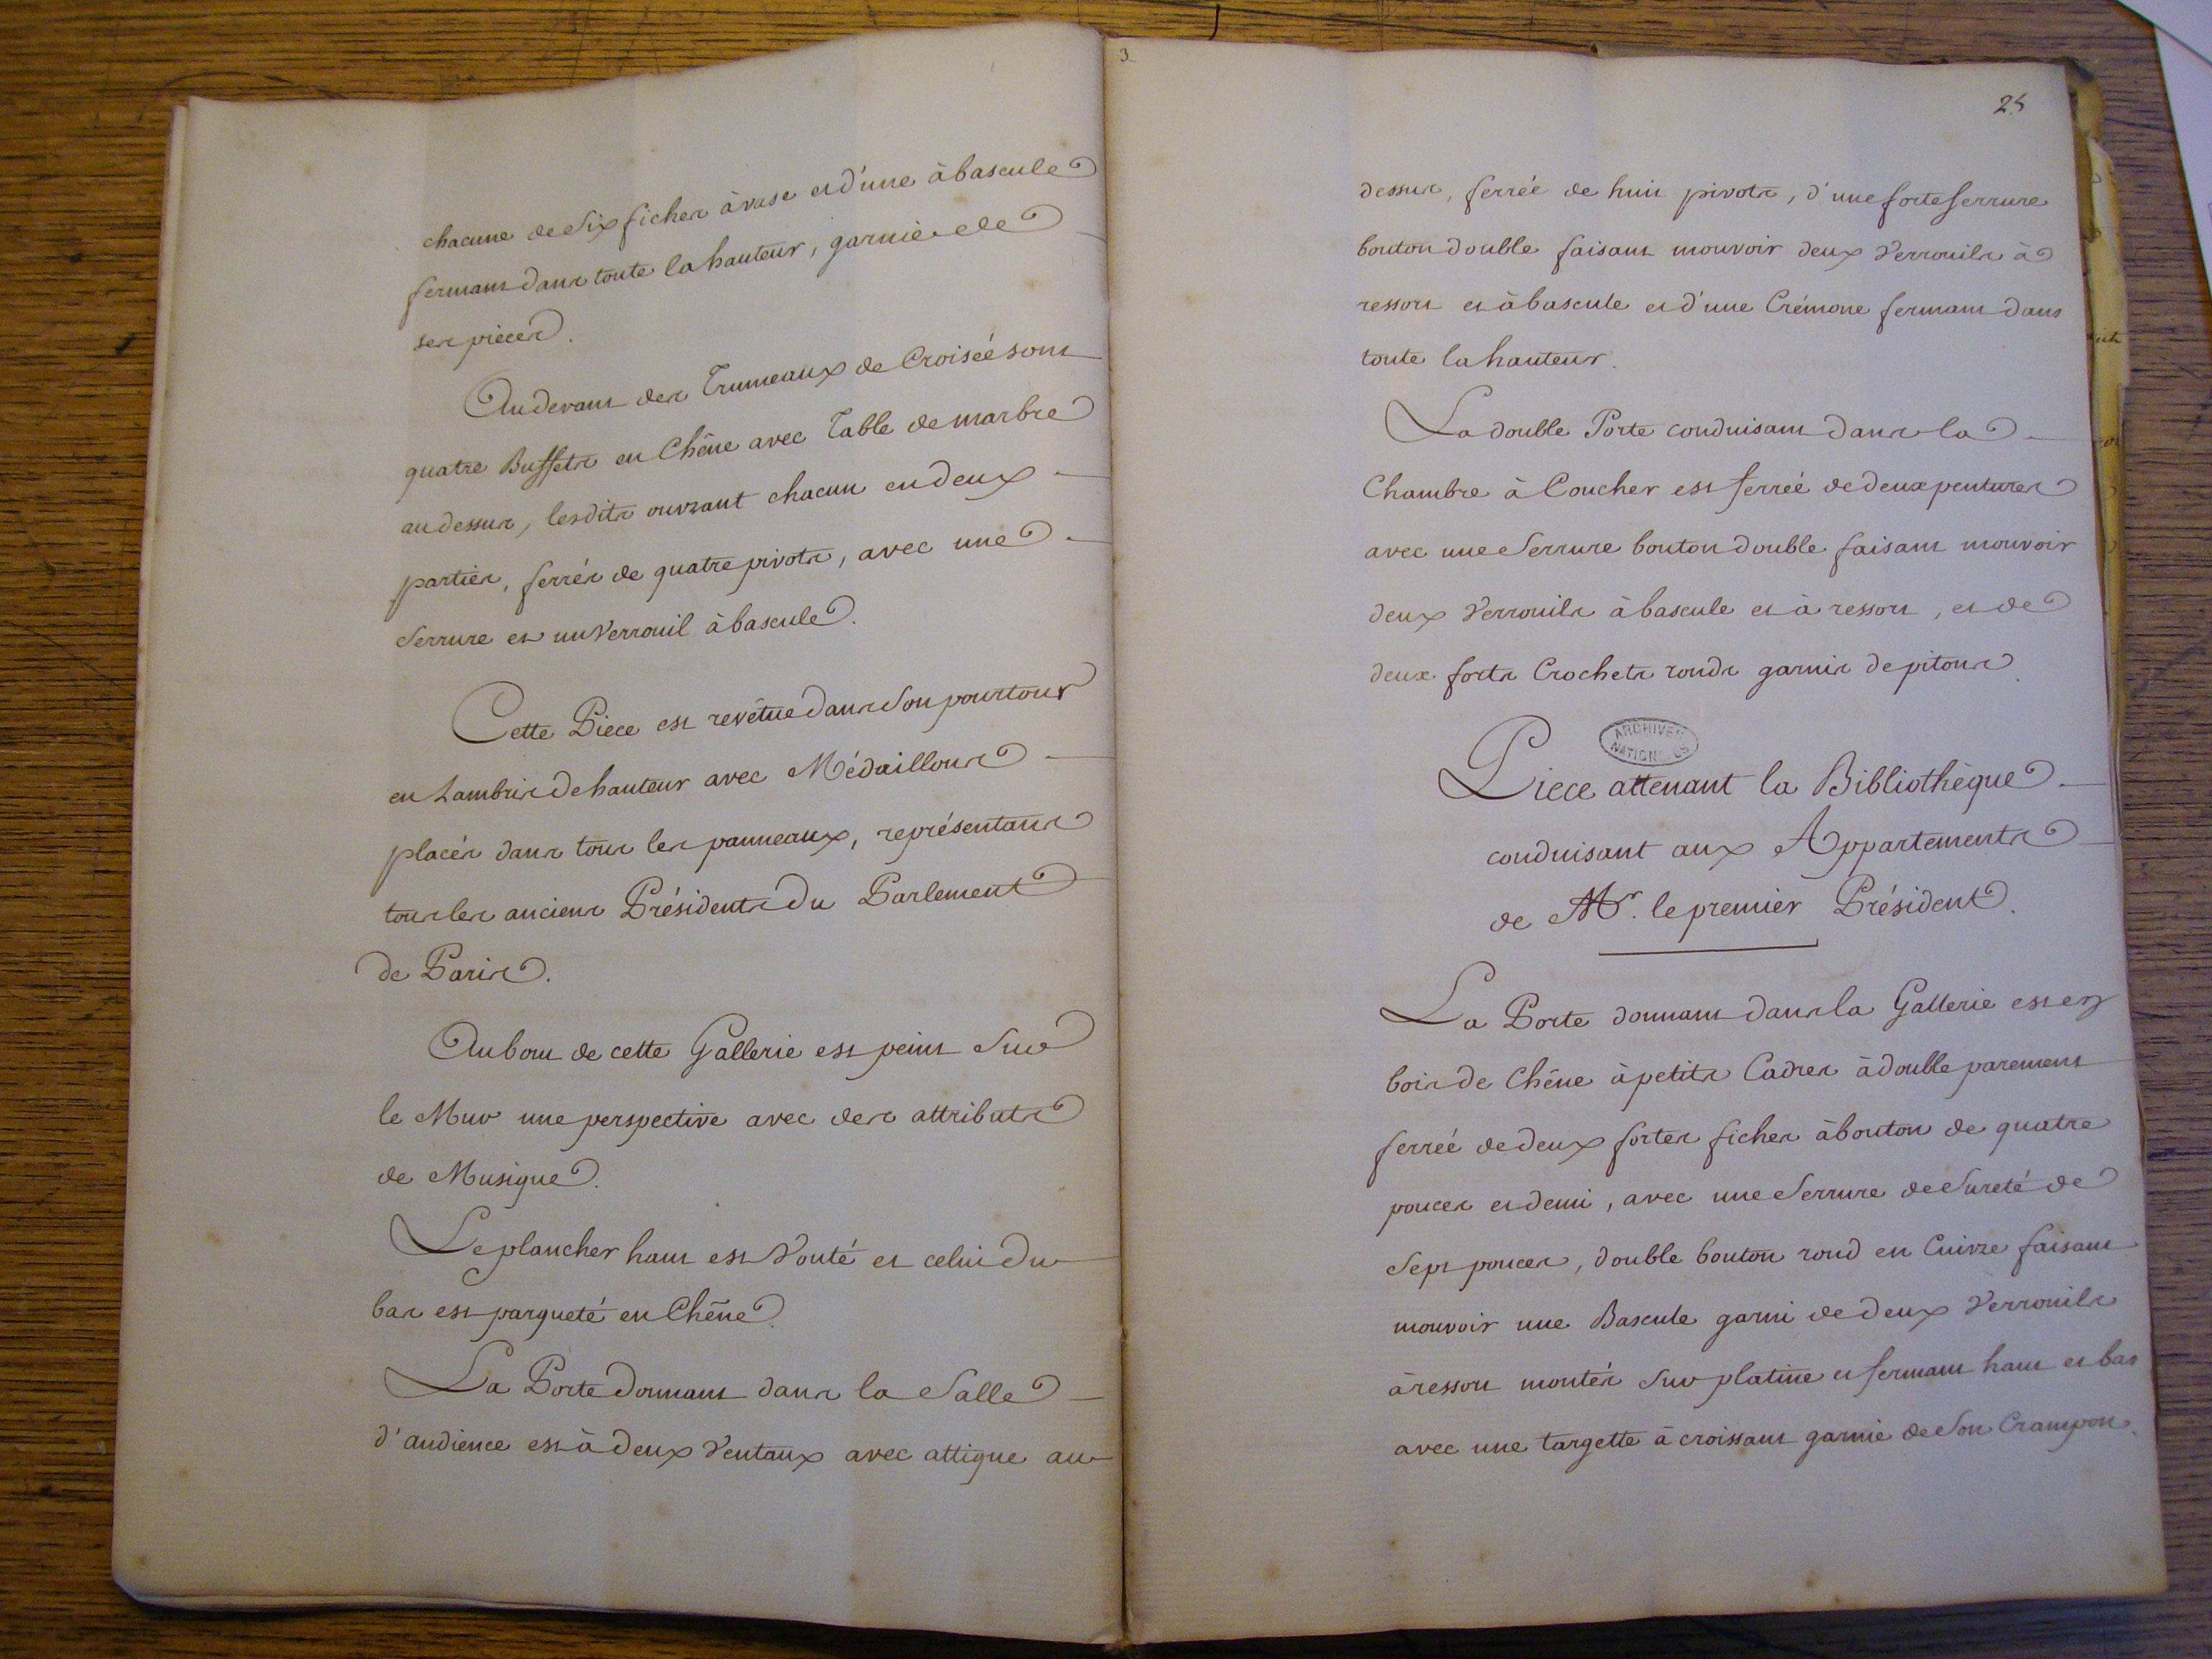 chacune de Six fiches à vase et d'une à bascule
fermant dans toute la hauteur, garnie de
ses pièces.
Au devant des Trumeaux de Croisée sont
quatre Buffets en Chêne avec Table de marbre
au dessus, lesdits ouvrant chacun en deux
parties, ferrés de quatre pivots, avec une
Serrure et un Verrouil à bascule.
Cette Piece est revêtue dans Son pourtour
en Lambris de hauteur avec Médaillons
placés dans tous les panneaux, représentans
tous les anciens Présidents Du Parlement
de Paris.
Au bout de cette Gallerie est peint Sur
le Mur une perspective avec des attributs
de Musique.
Le plancher haut est Vouté et celui du
bas est parqueté en Chêne.
La Porte donnant dans la Salle
d'audience est à deux Ventaux avec attique au
3
25
dessus, ferrée de huit pivots, d'une forte serrure
bouton double faisant mouvoir deux Verrouils à
ressort et à bascule et d'une Crémone fermant dans
toute la hauteur.
La double Porte conduisant dans la
Chambre à Coucher est ferrée de deux pentures
avec une Serrure bouton double faisant mouvoir
deux Verrouils à bascule et à ressort, et de
deux forts Crochets ronds garnis de pitons.
ARCHIVES
NATIONALES
Piece attenant la Bibliothèque
conduisant aux Appartements
de Mr. le premier Président.
La Porte donnant dans la Gallerie est en
bois de Chêne à petits Cadres à double parement
ferrée de deux fortes fiches à bouton de quatre
pouces et demi, avec une Serrure de Sureté de
Sept pouces, double bouton rond en Cuivre faisant
mouvoir une Bascule garni de deux Verrouils
à ressort montés Sur platine et fermant haut et bas
avec une targette à croissant garnie de Son Crampon.